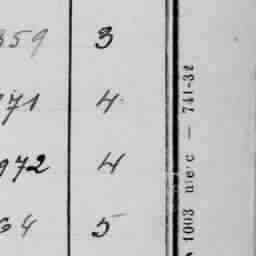 359 3
71 4
972 4
64 5
1003 — 741-32